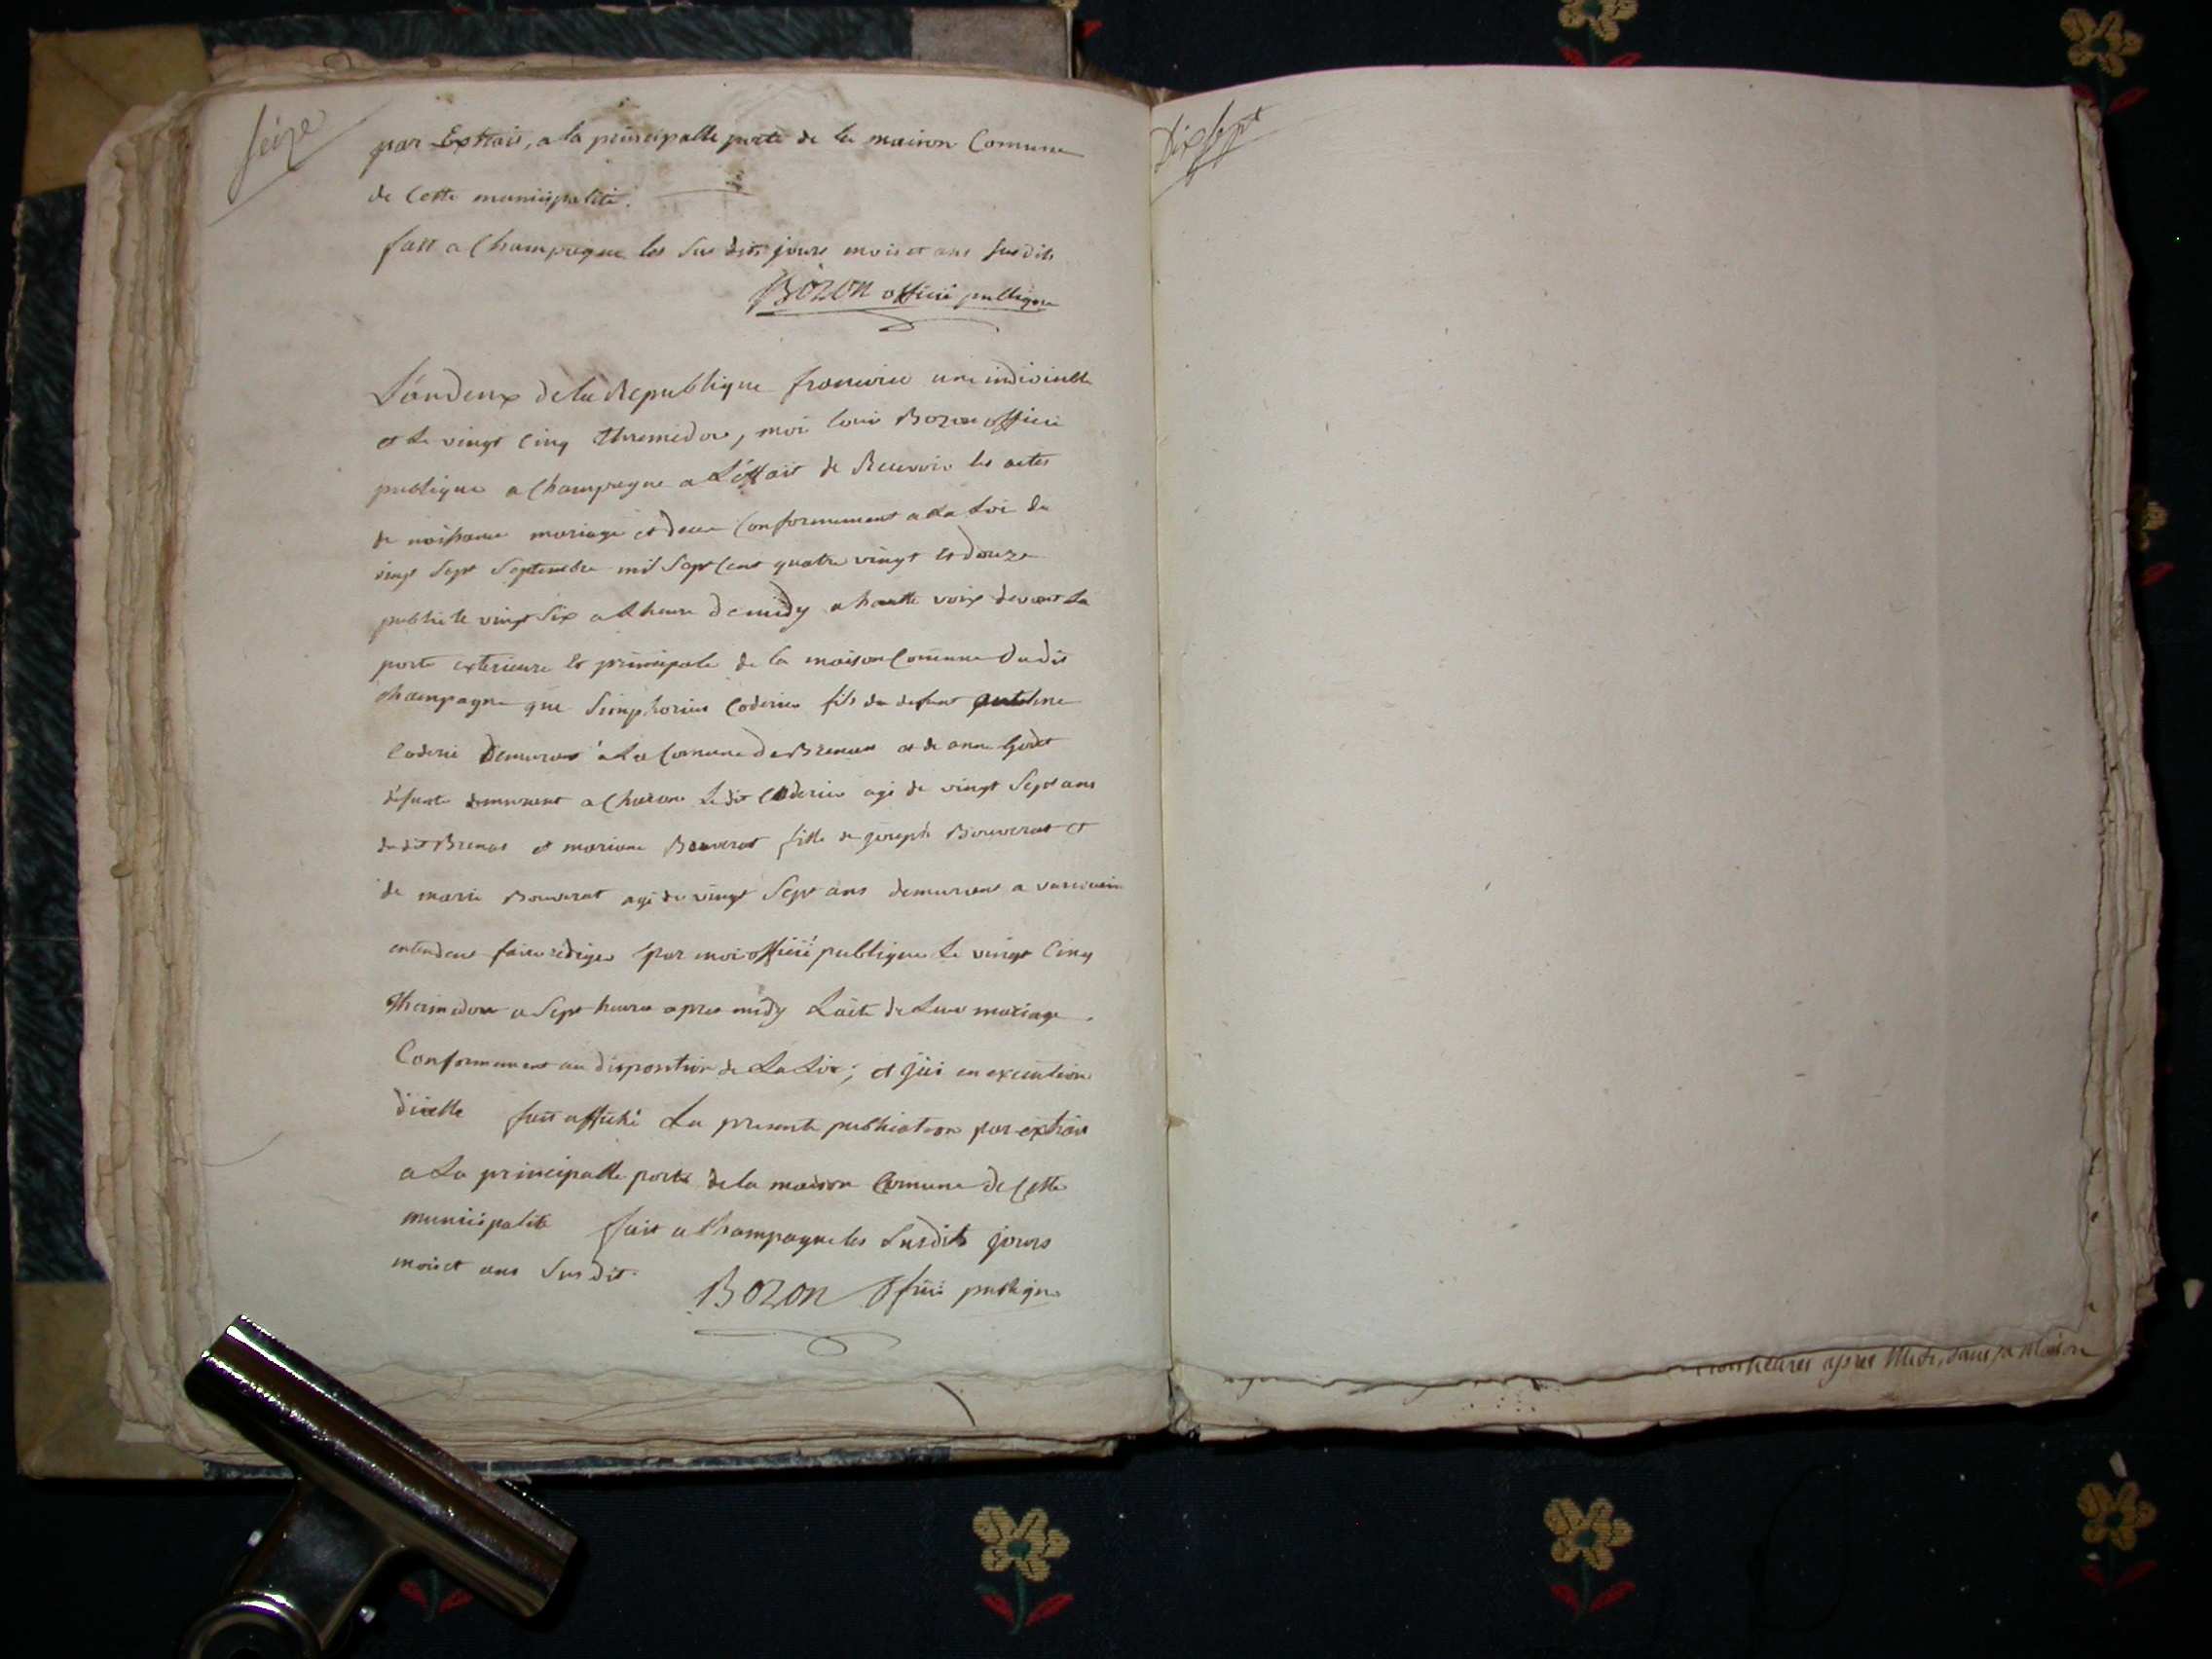 seize
par Extrais, a la principalle porte de la maison Comune
de Cette municipalité.
fait a Champagne les Sus dits jours mois et ans susdits
BOZON officié publique
L'an deux de la Republique francoise une indivisible
et le vingt Cinq thremidor, moi louis Bozon officié
publique a Champagne a L'effait de Recevoir les actes
de naissance mariage et decé Conformement a La Loi du
vingt Sept Septembre mil Sept Cent quatre vingt et douze
publié le vingt Six a L'heure de midy a hautte voix devant La
porte exterieure et principale de la maison Comune dudit
Champagne que Simphorien Coderier fils du defunt
Coderié demurant a La Comune de Brenas et de anne
défunte demurent a Ledit Coderier agé de vingt Sept ans
du dit Brenas et mariane Bouverat fille de joseph Bouverat et
de marie Bouverat agé de vingt Sept ans demurent a
entendent faire rédiger par moi officié publique Le vingt Cinq
Thermidore a Sept heures apres midy L'acte de Leur mariage
Conformement au disposition de La Loi; et j'ai en execution
dicelle fait affiché La presente publication par extrais
a La principalle porte de la maison Comune de Cette
municipalité fait a Champagne les Susdits jours
mois et ans Sus dit.
BOZON officié publique
Dix sept
trois heures après Midi, dans sa Maison